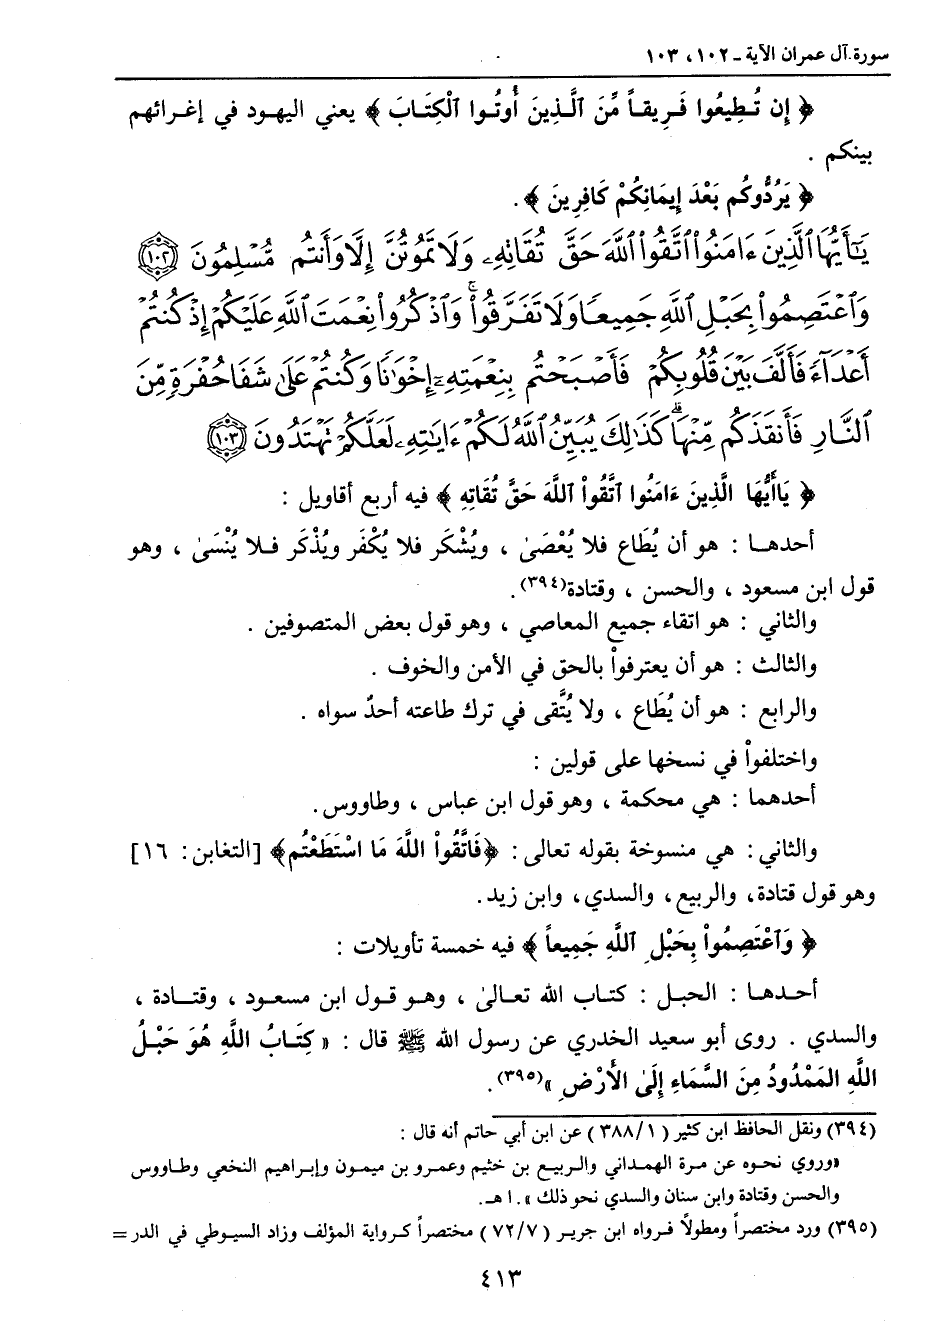 سورة آل عمران الآية ـ ١٠٢، ١٠٣
﴿ إِن تُطِيعُوا فَرِيقاً مِّنَ ٱلَّذِينَ أُوتُوا ٱلْكِتَابَ ﴾ يعني اليهود في إغرائهم
بينكم .
﴿ يَرُدُّوكُم بَعْدَ إِيمَانِكُمْ كَافِرِينَ ﴾ .
يَٰٓأَيُّهَا ٱلَّذِينَ ءَامَنُوا۟ ٱتَّقُوا۟ ٱللَّهَ حَقَّ تُقَاتِهِۦ وَلَا تَمُوتُنَّ إِلَّا وَأَنتُم مُّسْلِمُونَ ١٠٢
وَٱعْتَصِمُوا۟ بِحَبْلِ ٱللَّهِ جَمِيعًا وَلَا تَفَرَّقُوا۟ۚ وَٱذْكُرُوا۟ نِعْمَتَ ٱللَّهِ عَلَيْكُمْ إِذْ كُنتُمْ
أَعْدَآءً فَأَلَّفَ بَيْنَ قُلُوبِكُمْ فَأَصْبَحْتُم بِنِعْمَتِهِۦٓ إِخْوَٰنًا وَكُنتُمْ عَلَىٰ شَفَا حُفْرَةٍ مِّنَ
ٱلنَّارِ فَأَنقَذَكُم مِّنْهَاۗ كَذَٰلِكَ يُبَيِّنُ ٱللَّهُ لَكُمْ ءَايَٰتِهِۦ لَعَلَّكُمْ تَهْتَدُونَ ١٠٣
﴿ يَاأَيُّهَا الَّذِينَ ءَامَنُوا ٱتَّقُواْ ٱللَّهَ حَقَّ تُقَاتِهِ ﴾ فيه أربع أقاويل :
أحدهـا : هو أن يُطَاع فلا يُعْصَىٰ ، ويُشْكَر فلا يُكْفَر ويُذْكَر فـلا يُنْسَىٰ ، وهو
قول ابن مسعود ، والحسن ، وقتادة(٣٩٤).
والثاني : هو اتقاء جميع المعاصي ، وهو قول بعض المتصوفين .
والثالث : هو أن يعترفواْ بالحق في الأمن والخوف .
والرابع : هو أن يُطَاع ، ولا يُتَّقى في ترك طاعته أحدٌ سواه .
واختلفواْ في نسخها على قولين :
أحدهما : هي محكمة ، وهو قول ابن عباس ، وطاووس.
والثاني: هي منسوخة بقوله تعالى: ﴿فَاتَّقُواْ اللَّهَ مَا اسْتَطَعْتُم﴾ [التغابن: ١٦]
وهو قول قتادة، والربيع، والسدي، وابن زيد.
﴿ وَٱعْتَصِمُواْ بِحَبْلِ ٱللَّهِ جَمِيعاً ﴾ فيه خمسة تأويلات :
أحـدهـا : الحبل : كتاب الله تعالىٰ ، وهـو قـول ابن مسعود ، وقتـادة ،
والسدي . روى أبو سعيد الخدري عن رسول الله ﷺ قال : « كِتَـابُ اللَّهِ هُوَ حَبْـلُ
اللَّهِ المَمْدُودُ مِنَ السَّمَاءِ إِلَىٰ الأَرْضِ »(٣٩٥).
(٣٩٤) ونقل الحافظ ابن كثير ( ٣٨٨/١ ) عن ابن أبي حاتم أنه قال :
«وروي نحـوه عن مرة الهمـداني والربيع بن خثيم وعمرو بن ميمون وإبراهيم النخعي وطاووس
والحسن وقتادة وابن سنان والسدي نحو ذلك » . ا هـ.
(٣٩٥) ورد مختصراً ومطولاً فـرواه ابن جريـر ( ٧٢/٧ ) مختصراً كـرواية المؤلف وزاد السيـوطي في الدر =
٤١٣